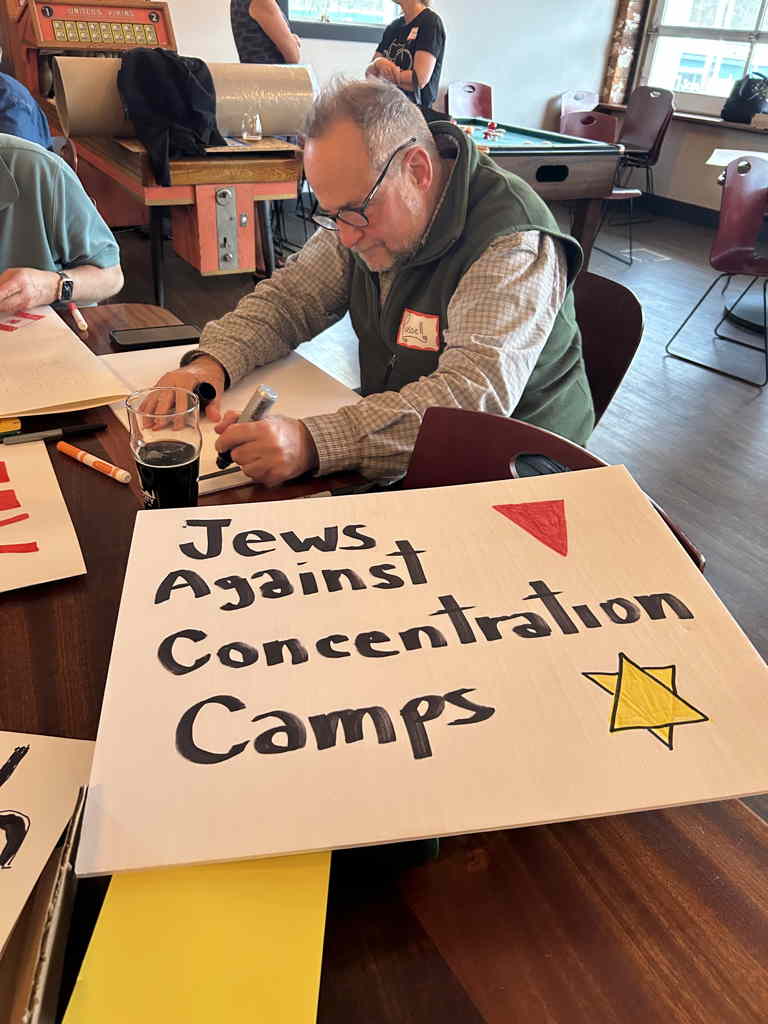 UNITED'S VIKING
1
2
Russell
Jews
Against
Concentration
Camps